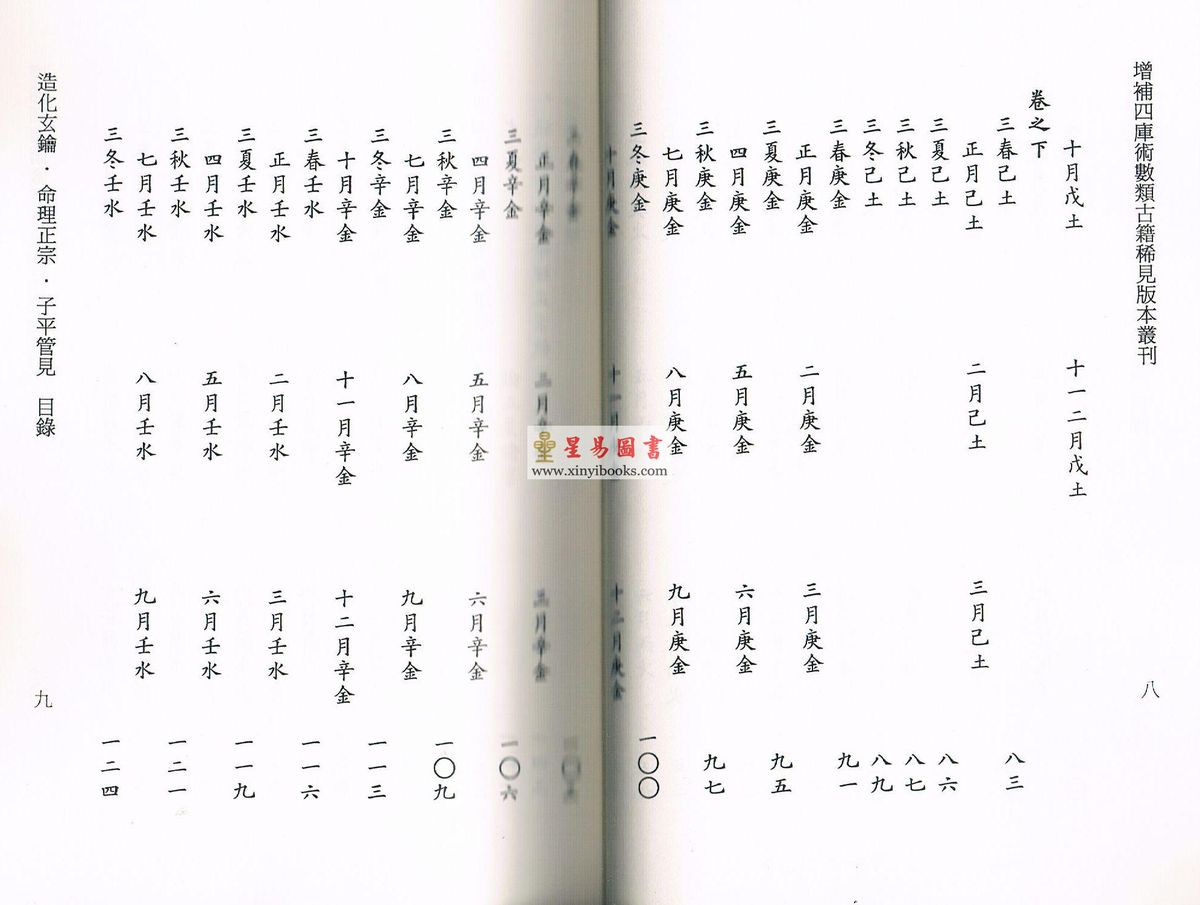 增補四庫術數類古籍稀見版本叢刊 八
十月戊土 十一二月戊土
卷之下
三春己土 八三
正月己土 二月己土 三月己土
三夏己土 八六
三秋己土 八七
三冬己土 八九
三春庚金 九一
正月庚金 二月庚金 三月庚金
三夏庚金 九五
四月庚金 五月庚金 六月庚金
三秋庚金 九七
七月庚金 八月庚金 九月庚金
三冬庚金 一〇〇
十月庚金 十一月 十二月庚金
三春辛金
正月辛金 二月 三月辛金
三夏辛金 一〇六
四月辛金 五月辛金 六月辛金
三秋辛金 一〇九
七月辛金 八月辛金 九月辛金
三冬辛金 一一三
十月辛金 十一月辛金 十二月辛金
三春壬水 一一六
正月壬水 二月壬水 三月壬水
三夏壬水 一一九
四月壬水 五月壬水 六月壬水
三秋壬水 一二一
七月壬水 八月壬水 九月壬水
三冬壬水 一二四
造化玄鑰・命理正宗・子平管見 目錄 九
星易圖書
www.xinyibooks.com